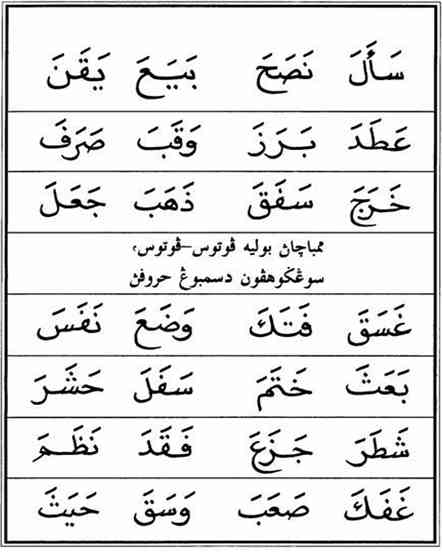 سَأَلَ نَصَحَ بَيَعَ يَقَنَ
عَطَدَ بَرَزَ وَقَبَ صَرَفَ
خَرَجَ سَفَقَ ذَهَبَ جَعَلَ
ممباچاڽ بوليه ڤوتوس–ڤوتوس،
سوڠݢوهڤون دسمبوڠ حروفڽ
غَسَقَ فَتَكَ وَضَعَ نَفَسَ
بَعَثَ خَتَمَ سَفَلَ حَشَرَ
شَطَرَ جَزَعَ فَقَدَ نَظَمَ
غَفَكَ صَعَبَ وَسَقَ حَيَثَ